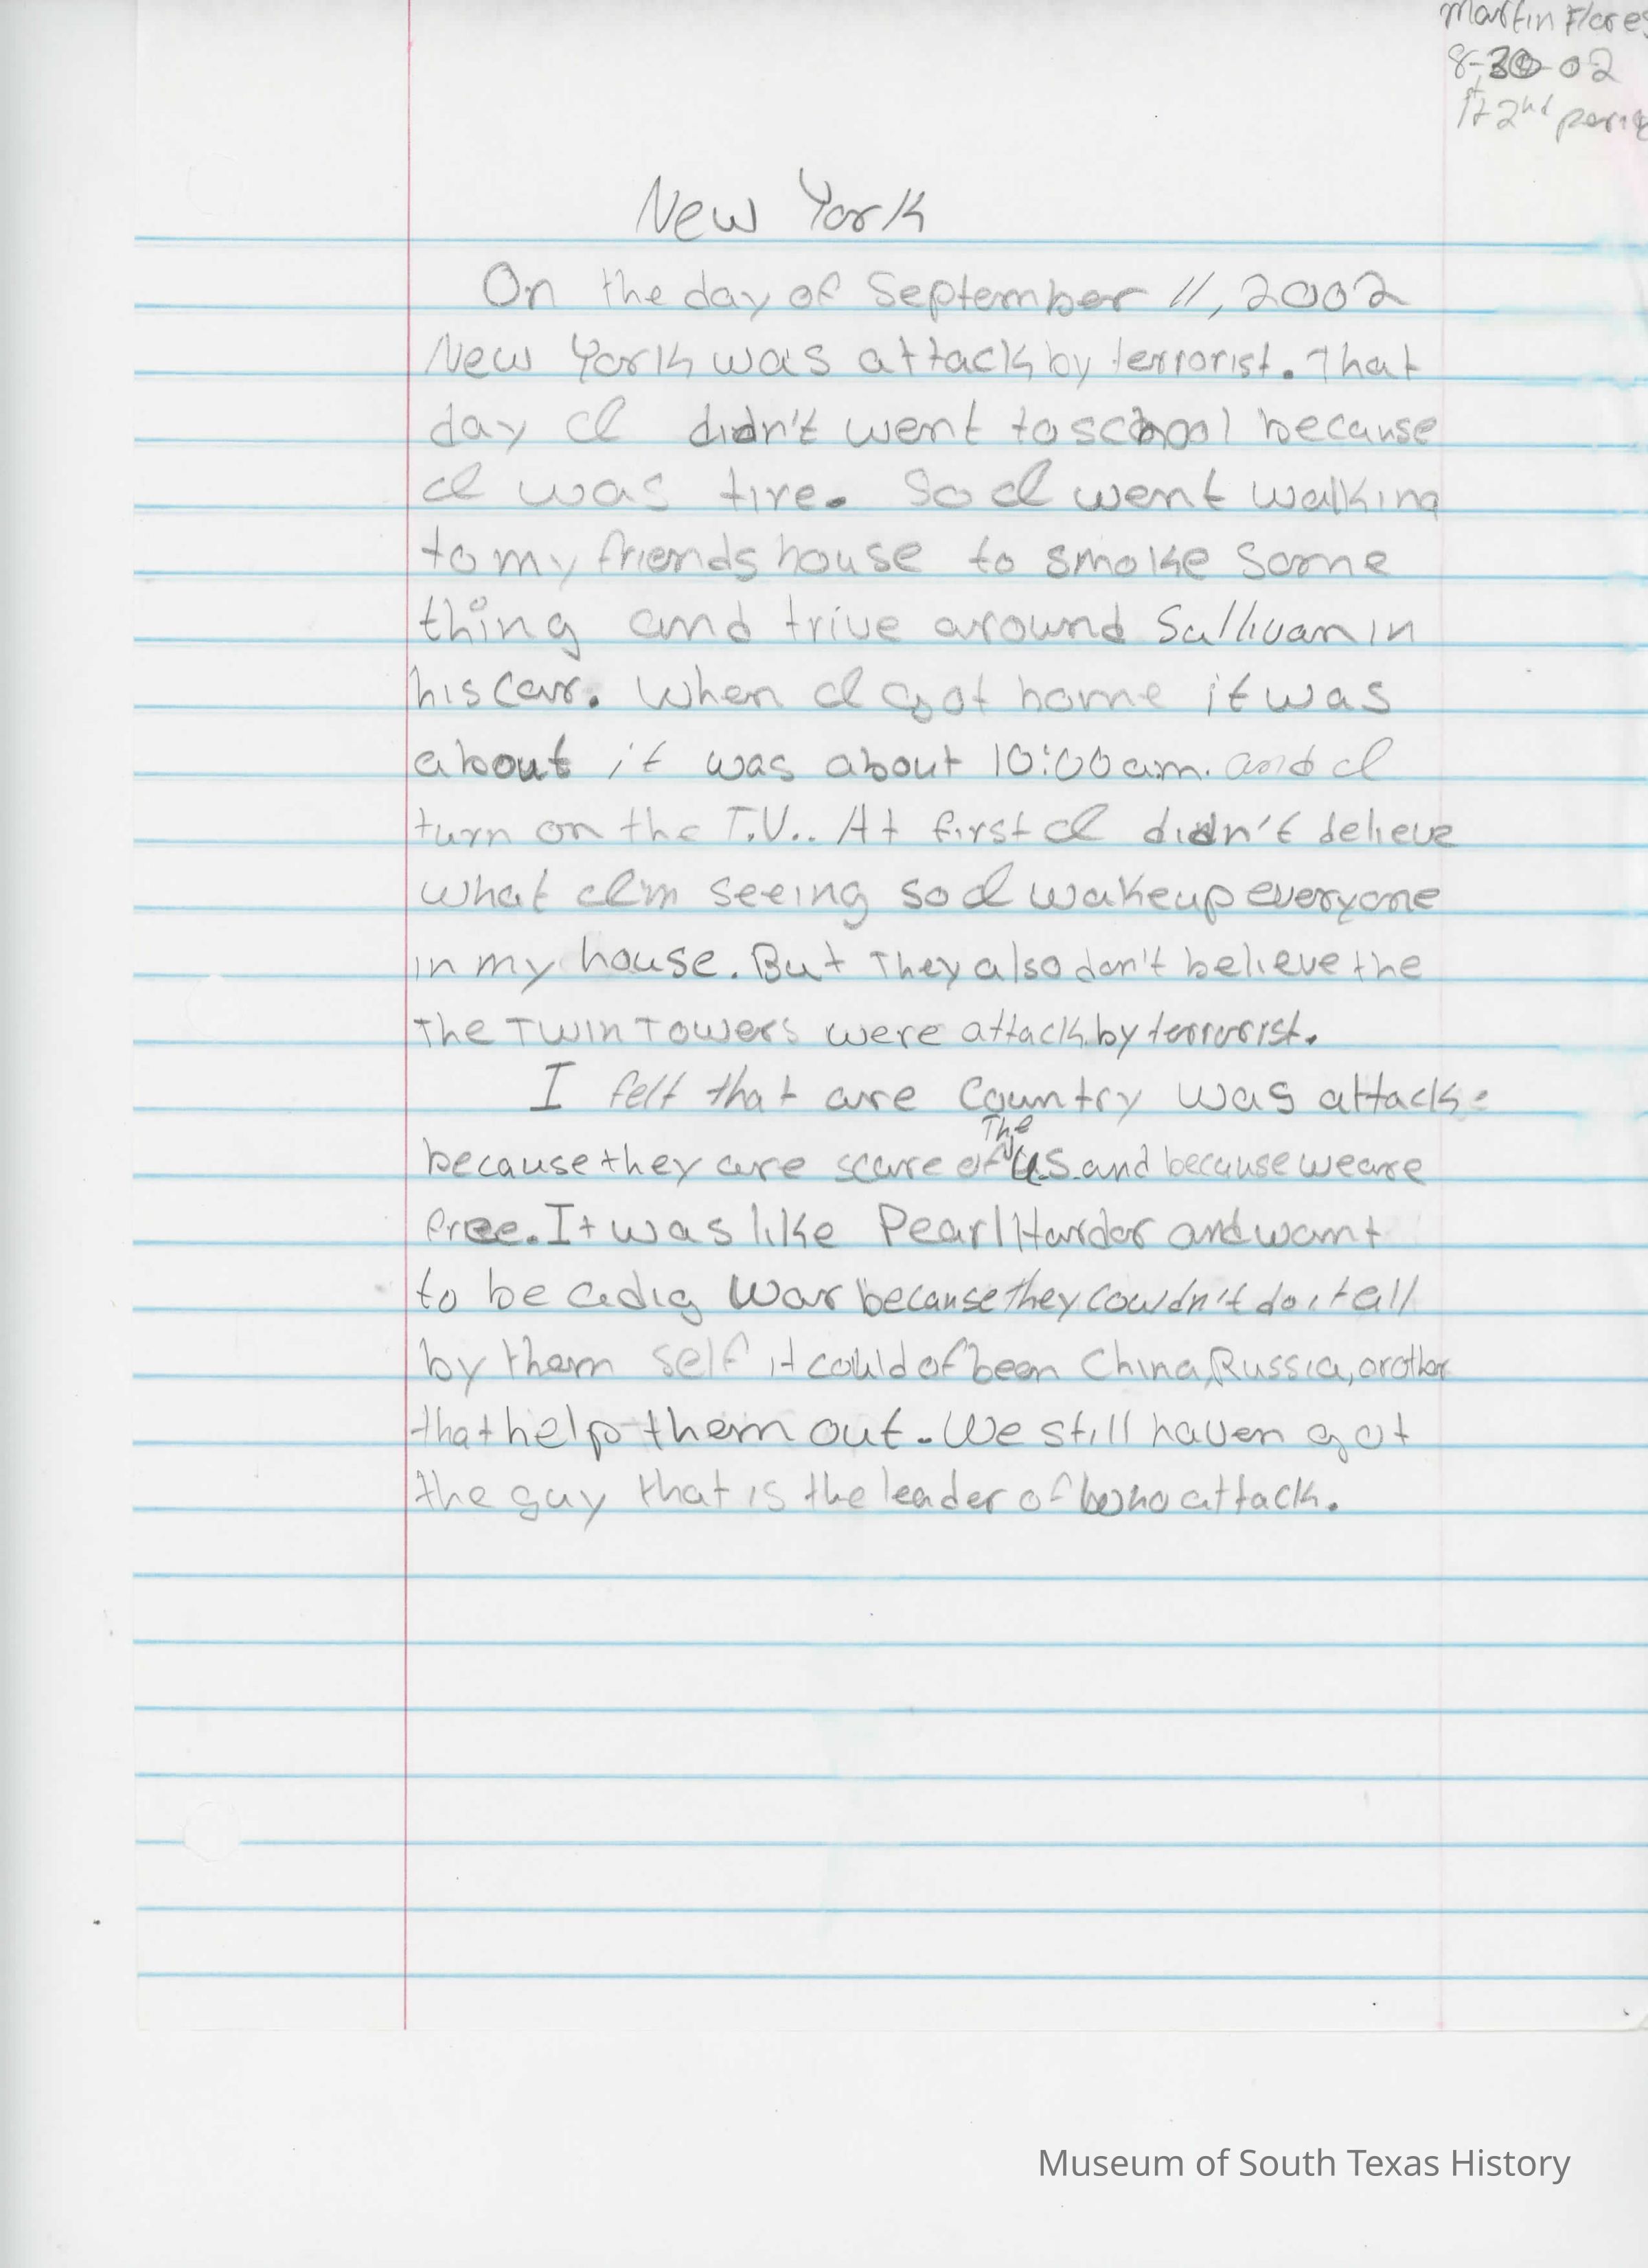 Martin Flores
8-30-02
1st 2nd period
New York
On the day of September 11, 2002
New York was attack by terrorist. That
day I didn't went to school because
I was tire. So I went walking
to my friends house to smoke some
thing and trive around Sullivan in
his car. When I got home it was
about it was about 10:00 am. and I
turn on the T.V.. At first I didn't delieve
what I'm seeing so I wakeup everyone
in my house. But They also don't believe the
the Twin Towers were attack by terrorist.
I felt that are Country was attack
because they are scare of The U.S. and because we are
free. It was like Pearl Hardor and want
to be a dig war because they couldn't do it all
by them self it could of been China, Russia, or other
that help them out. We still haven got
the guy that is the leader of who attack.
Museum of South Texas History